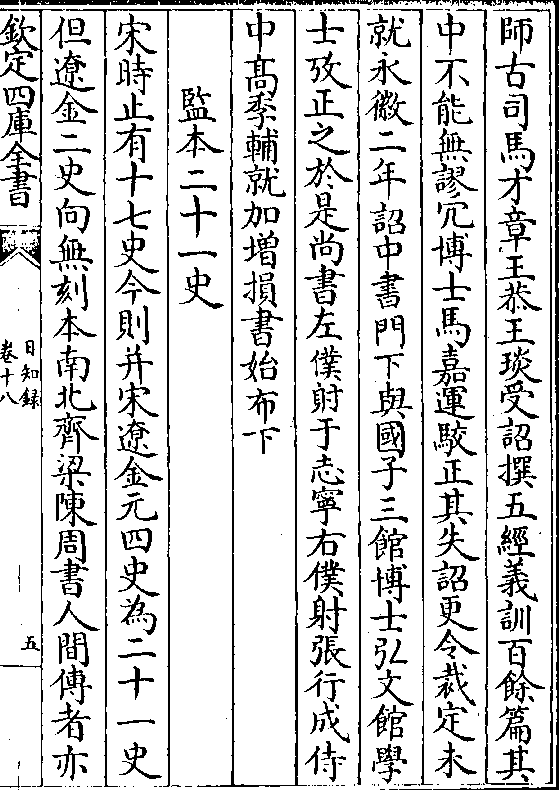 師古司馬才章王恭王琰受詔撰五經義訓百餘篇其
中不能無謬冗博士馬嘉運駮正其失詔更令裁定未
就永徽二年詔中書門下與國子三館博士弘文館學
士攷正之於是尚書左僕射于志寧右僕射張行成侍
中髙季輔就加增損書始布下
監本二十一史
宋時止有十七史今則并宋遼金元四史為二十一史
但遼金二史向無刻本南北齊梁陳周書人間傳者亦
欽定四庫全書
日知録
卷十八
五